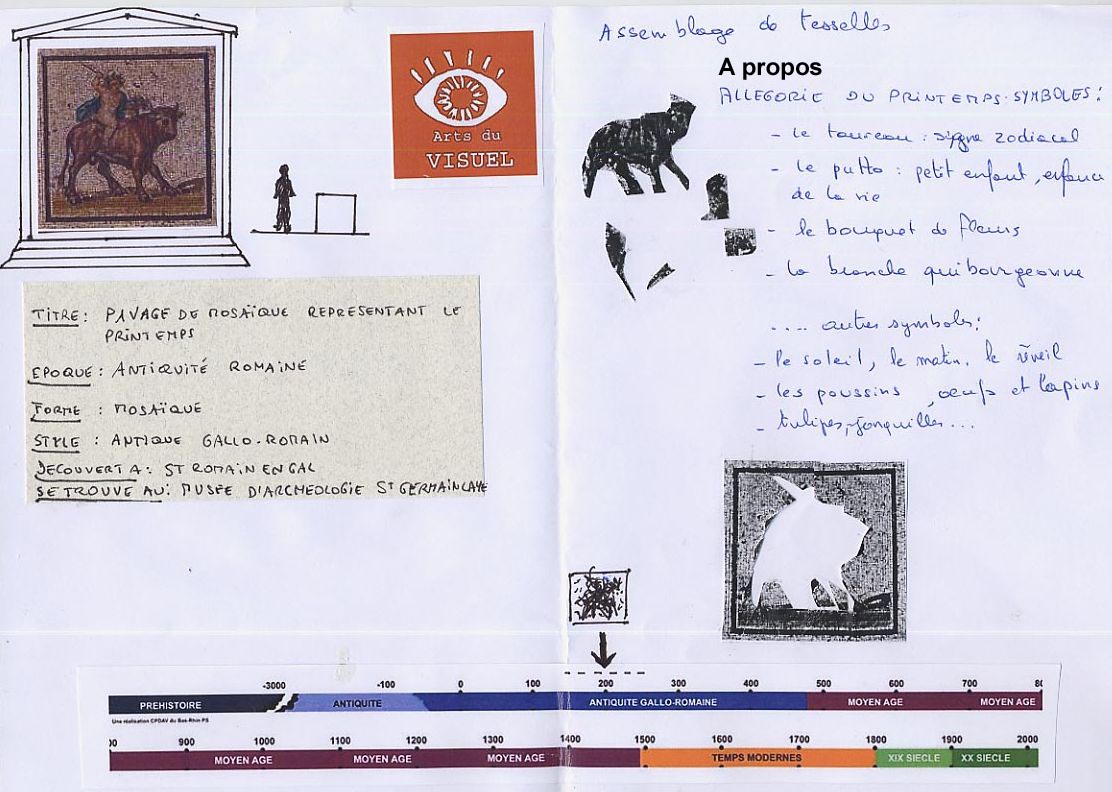 Arts du
VISUEL
TITRE: PAVAGE DE MOSAÏQUE REPRESENTANT LE
PRINTEMPS
EPOQUE: ANTIQUITÉ ROMAINE
FORME : MOSAÏQUE
STYLE : ANTIQUE GALLO-ROMAIN
DECOUVERT A: ST ROMAIN EN GAL
SE TROUVE AU: MUSÉE D'ARCHEOLOGIE ST GERMAIN LAYE
Assemblage de tesselles
A propos
ALLEGORIE DU PRINTEMPS-SYMBOLES:
- le taureau : signe zodiacal
- le putto : petit enfant, enfance
de la vie
- le bouquet de fleurs
- la branche qui bourgeonne
.... autres symboles:
- le soleil, le matin. le réveil
- les poussins, oeufs et lapins
- tulipes, jonquilles...
-3000 -100 0 100 200 300 400 500 600 700 80
PREHISTOIRE ANTIQUITE ANTIQUITE GALLO-ROMAINE MOYEN AGE MOYEN AGE
Une réalisation CPDAV du Bas-Rhin-PS
00 900 1000 1100 1200 1300 1400 1500 1600 1700 1800 1900 2000
MOYEN AGE MOYEN AGE MOYEN AGE TEMPS MODERNES XIX SIECLE XX SIECLE